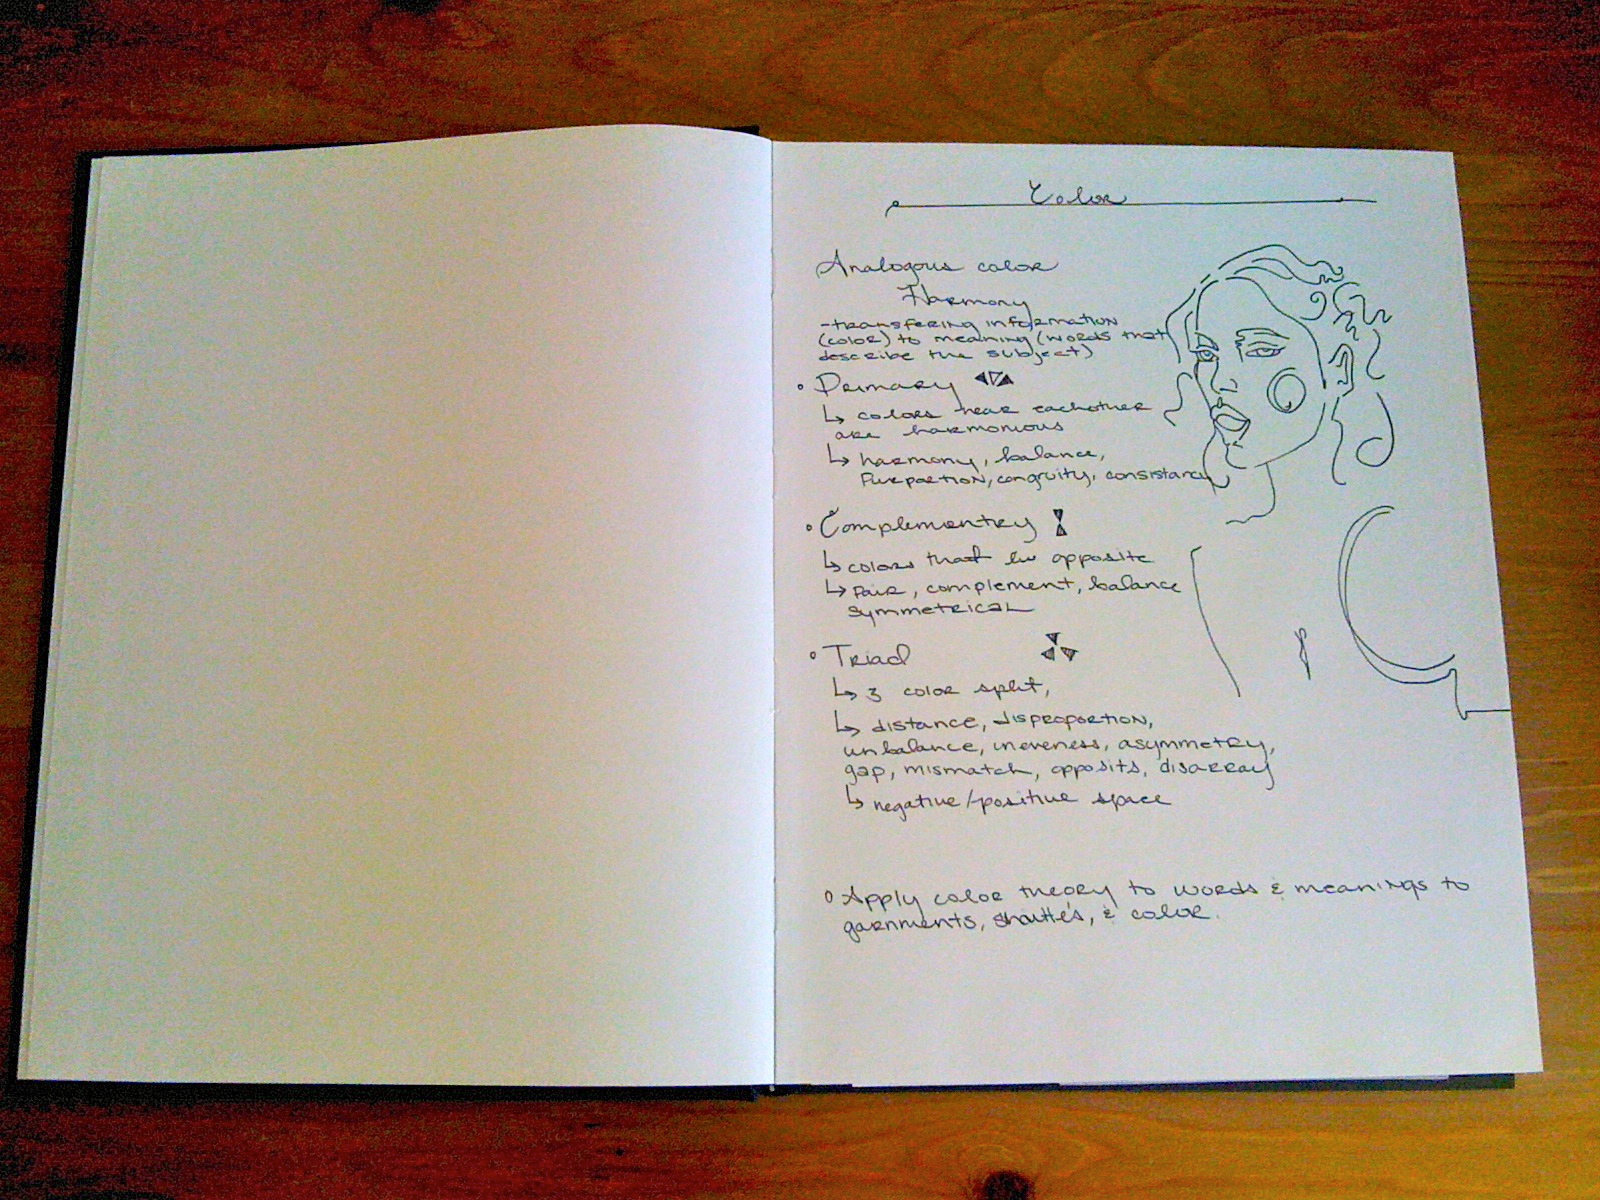 Color
Analogous color
Harmony
-transfering information
(color) to meaning (words that
describe the subject)
Primary
↳ colors near eachother
are harmonious
↳ harmony, balance,
Purportion, congruity, consistancy
Complementry
↳ colors that are opposite
↳ pair, complement, balance
symmetrical
Triad
↳ 3 color split,
↳ distance, disproportion,
unbalance, uneveness, asymmetry,
gap, mismatch, opposits, disarray
↳ negative/positive space
Apply color theory to words & meanings to
garnments, & color.